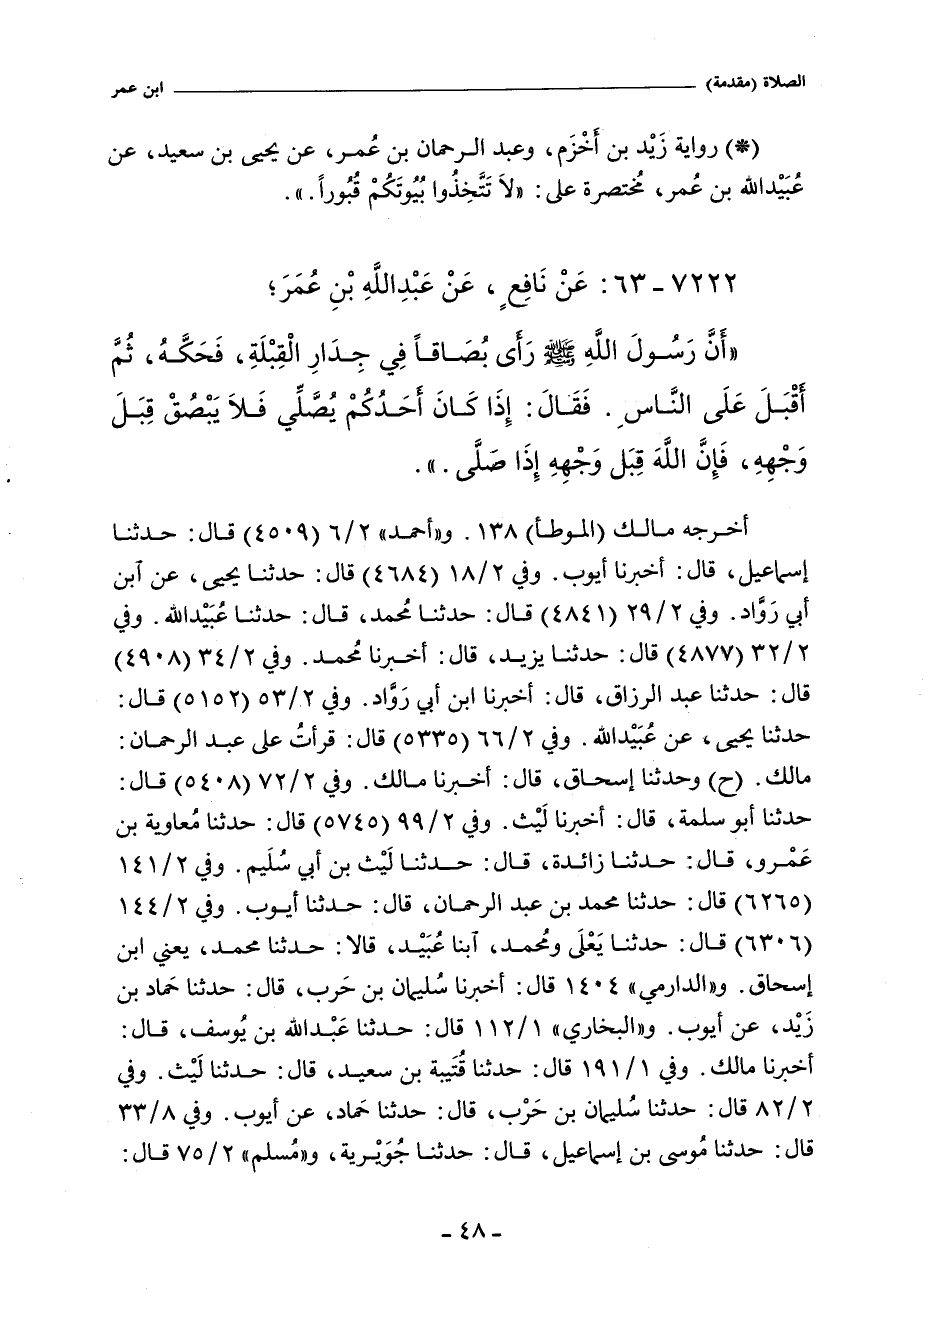 الصلاة (مقدمة) ابن عمر
(*) رواية زَيْد بن أَخْزَم، وعبد الرحمان بن عُمر، عن يحيى بن سعيد، عن
عُبَيْدالله بن عُمر، مُختصرة على: «لَا تَتَّخِذُوا بُيُوتَكُمْ قُبُوراً.».
٧٢٢٢ - ٦٣: عَنْ نَافِعٍ، عَنْ عَبْدِاللَّهِ بْنِ عُمَرَ؛
«أَنَّ رَسُولَ اللَّهِ ﷺ رَأَى بُصَاقاً فِي جِدَارِ الْقِبْلَةِ، فَحَكَّهُ، ثُمَّ
أَقْبَلَ عَلَى النَّاسِ. فَقَالَ: إِذَا كَانَ أَحَدُكُمْ يُصَلِّي فَلاَ يَبْصُقْ قِبَلَ
وَجْهِهِ، فَإِنَّ اللَّهَ قِبَلَ وَجْهِهِ إِذَا صَلَّى.».
أخرجه مالك (الموطأ) ١٣٨. و«أحمد» ٦/٢ (٤٥٠٩) قال: حدثنا
إسماعيل، قال: أخبرنا أيوب. وفي ١٨/٢ (٤٦٨٤) قال: حدثنا يحيى، عن ابن
أبي رَوَّاد. وفي ٢٩/٢ (٤٨٤١) قال: حدثنا مُحمد، قال: حدثنا عُبَيْدالله. وفي
٣٢/٢ (٤٨٧٧) قال: حدثنا يزيد، قال: أخبرنا مُحمد. وفي ٣٤/٢ (٤٩٠٨)
قال: حدثنا عبد الرزاق، قال: أخبرنا ابن أبي رَوَّاد. وفي ٥٣/٢ (٥١٥٢) قال:
حدثنا يحيى، عن عُبَيْدالله. وفي ٦٦/٢ (٥٣٣٥) قال: قرأتُ على عبد الرحمان:
مالك. (ح) وحدثنا إسحاق، قال: أخبرنا مالك. وفي ٧٢/٢ (٥٤٠٨) قال:
حدثنا أبو سلمة، قال: أخبرنا لَيْث. وفي ٩٩/٢ (٥٧٤٥) قال: حدثنا مُعاوية بن
عَمْرو، قال: حدثنا زائدة، قال: حدثنا لَيْث بن أبي سُلَيم. وفي ١٤١/٢
(٦٢٦٥) قال: حدثنا محمد بن عبد الرحمان، قال: حدثنا أيوب. وفي ١٤٤/٢
(٦٣٠٦) قال: حدثنا يَعْلَى ومُحمد، آبنا عُبَيْد، قالا: حدثنا محمد، يعني ابن
إسحاق. و«الدارمي» ١٤٠٤ قال: أخبرنا سُليمان بن حَرب، قال: حدثنا حَماد بن
زَيْد، عن أيوب. و«البخاري» ١١٢/١ قال: حدثنا عَبْدالله بن يُوسف، قال:
أخبرنا مالك. وفي ١٩١/١ قال: حدثنا قُتَيبة بن سعيد، قال: حدثنا لَيْث. وفي
٨٢/٢ قال: حدثنا سُليمان بن حَرْب، قال: حدثنا حَماد، عن أيوب. وفي ٣٣/٨
قال: حدثنا مُوسى بن إسماعيل، قال: حدثنا جُوَيْرية، و«مُسلم» ٧٥/٢ قال:
- ٤٨ -